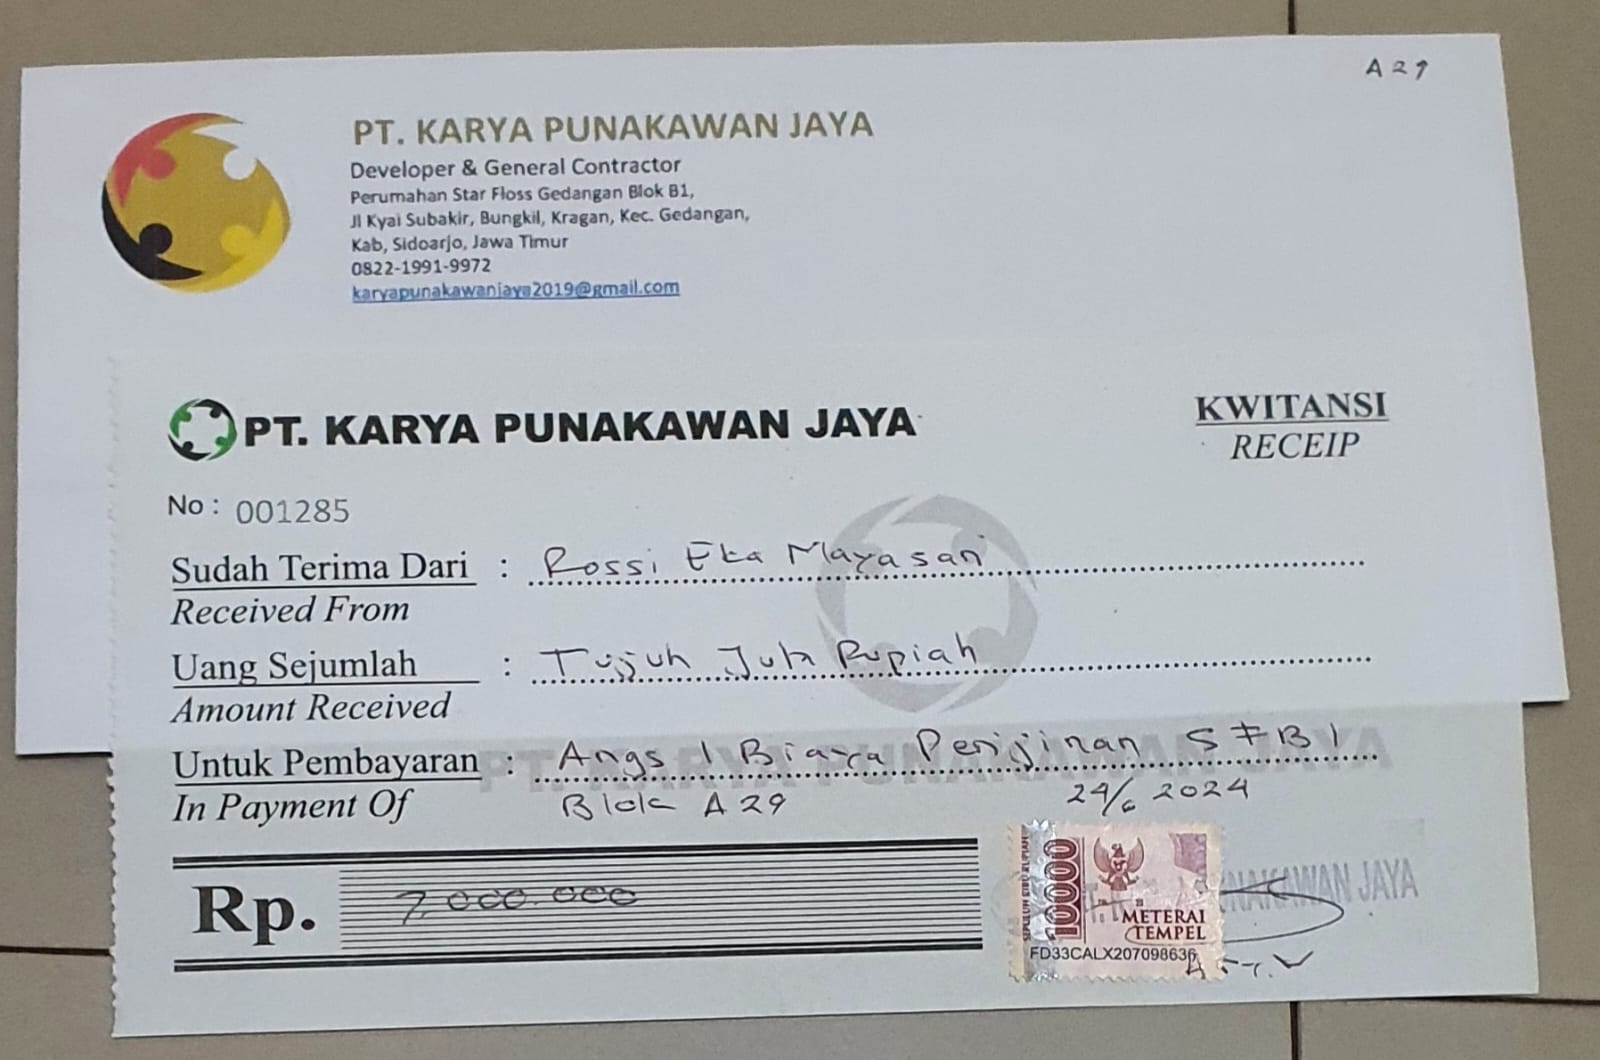 A29
PT. KARYA PUNAKAWAN JAYA
Developer & General Contractor
Perumahan Star Floss Gedangan Blok B1,
Jl Kyai Subakir, Bungkil, Kragan, Kec. Gedangan,
Kab, Sidoarjo, Jawa Timur
0822-1991-9972
karyapunakawanjaya2019@gmail.com
PT. KARYA PUNAKAWAN JAYA
KWITANSI
RECEIP
No : 001285
Sudah Terima Dari : Rossi Eka Mayasari
Received From
Uang Sejumlah : Tujuh Juta Rupiah
Amount Received
Untuk Pembayaran : Angs 1 Biaya Perijinan SFB1
In Payment Of Blok A29 24/6 2024
PT. KARYA PUNAKAWAN JAYA
Rp. 7.000.000
SEPULUH RIBU RUPIAH
10000
METERAI
TEMPEL
FD33CALX207098636
PUNAKAWAN JAYA